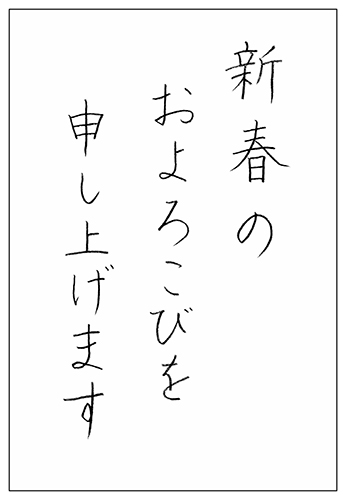 新春の
およろこびを
申し上げます